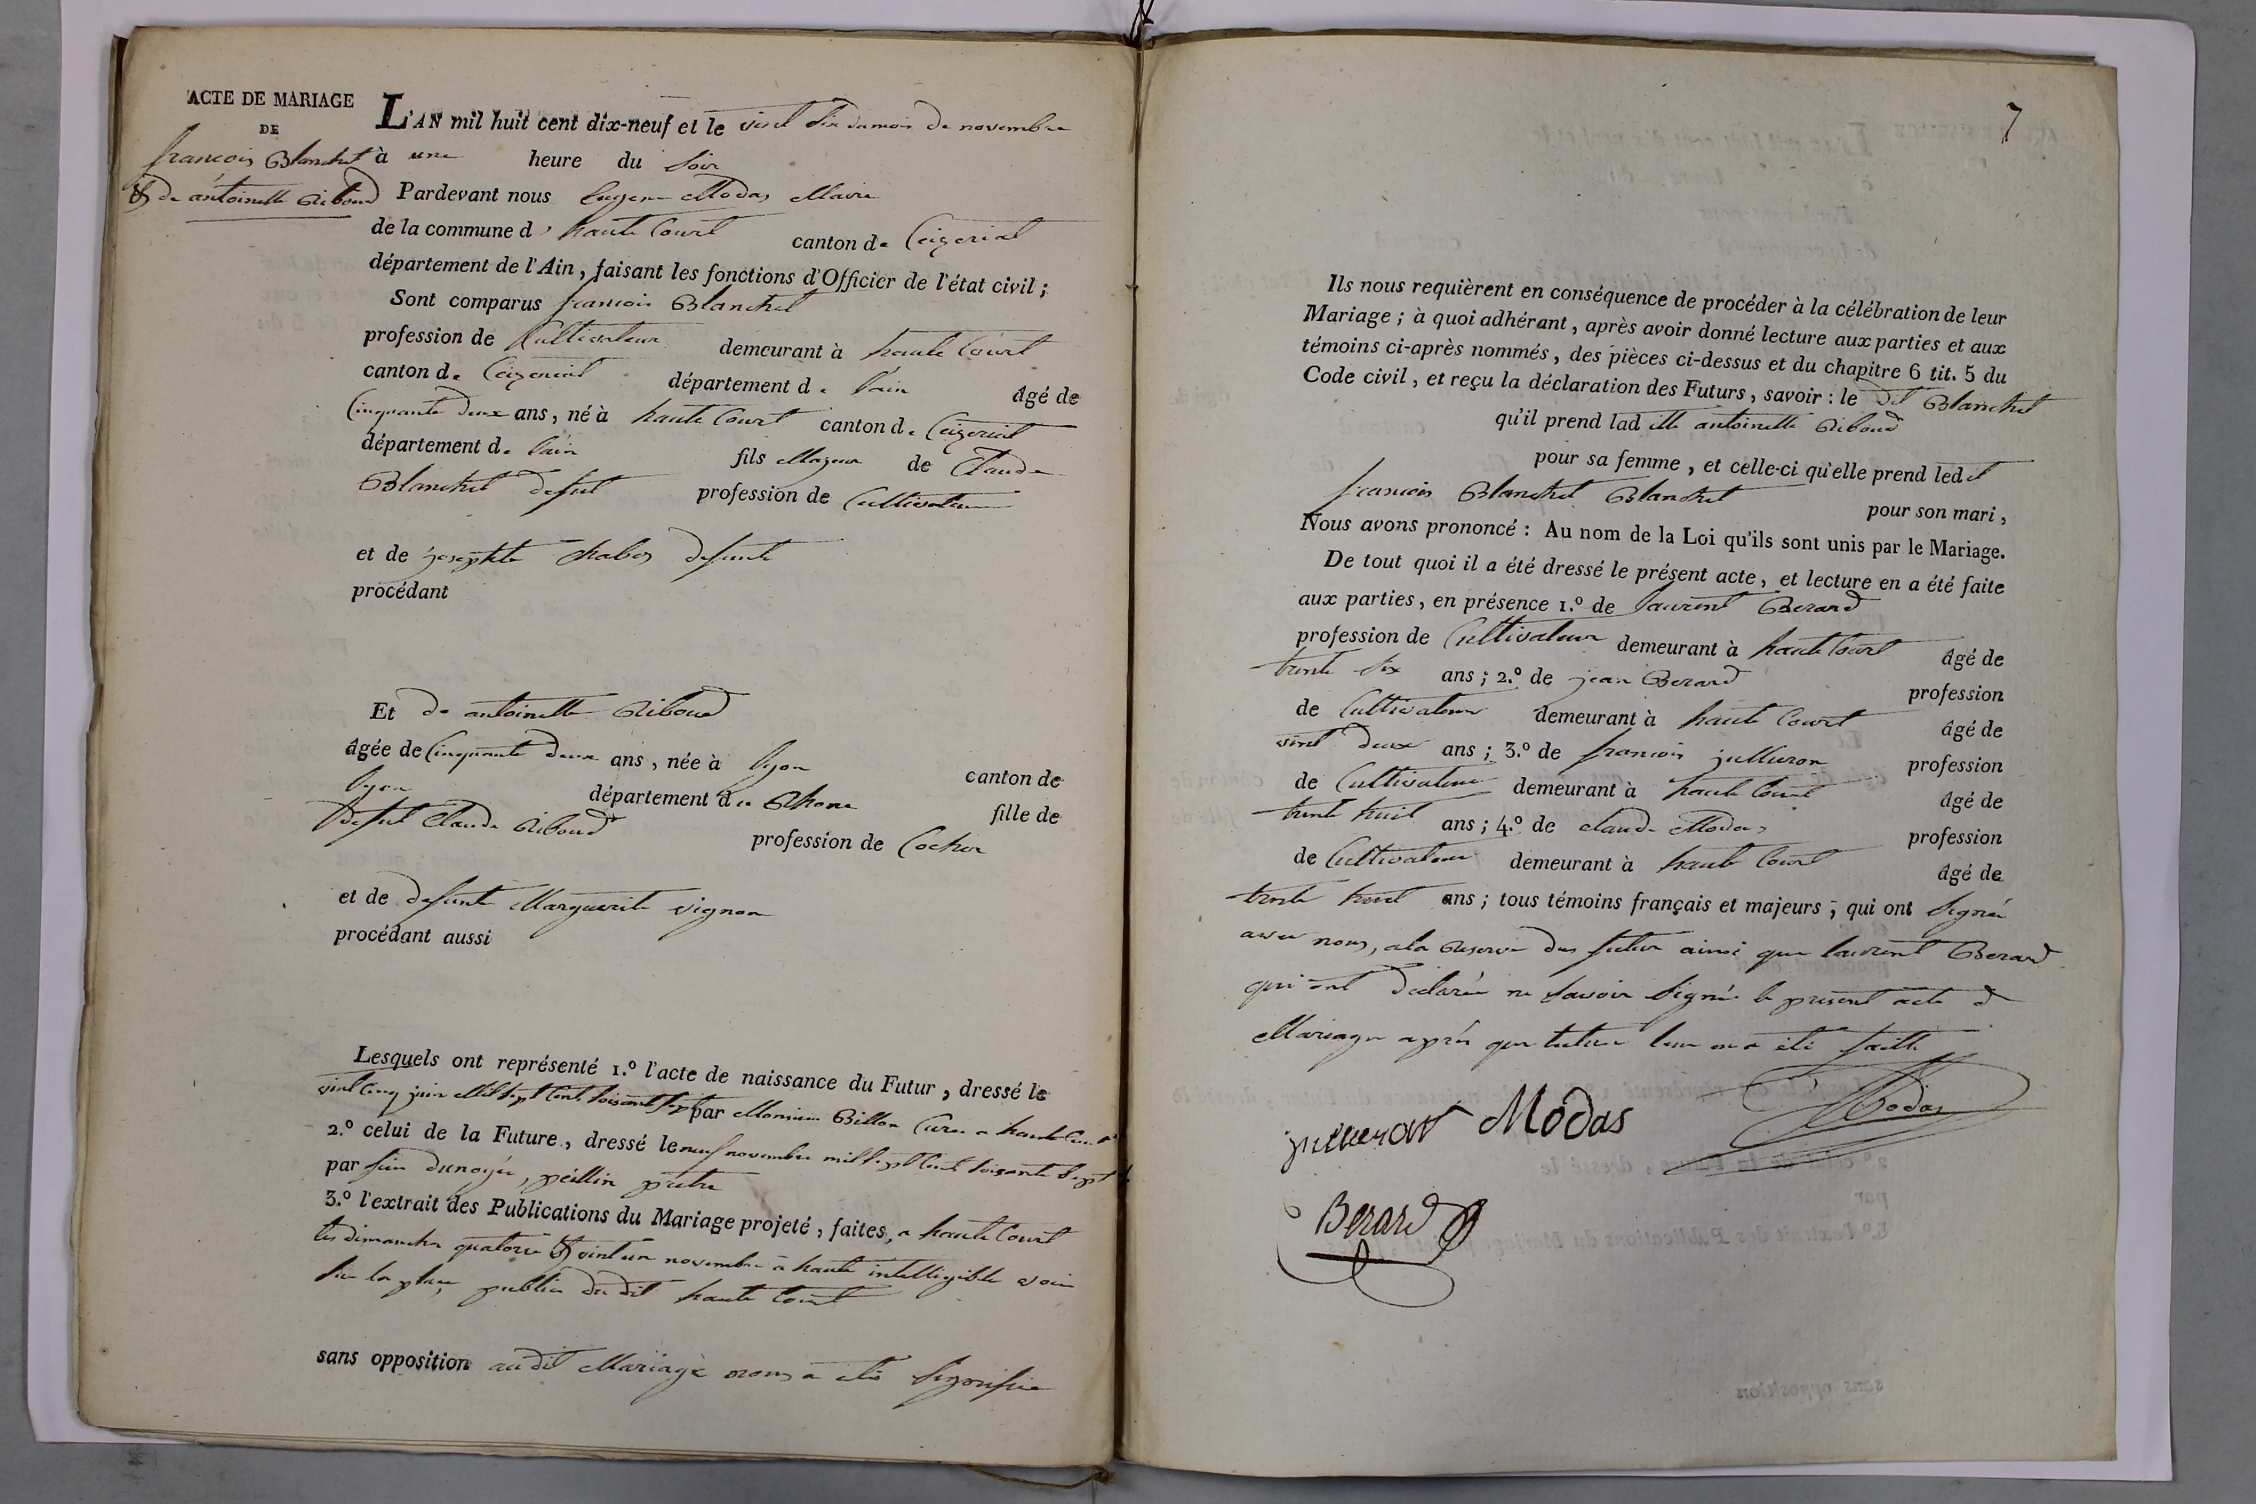 ACTE DE MARIAGE
DE
francois Blanchet
& de antoinette Riboud
L'AN mil huit cent dix-neuf et le vint six du mois de novembre
à une heure du soir
Pardevant nous Eugene Modas Maire
de la commune d' haute Court canton de Ceizeriat
département de l'Ain, faisant les fonctions d'Officier de l'état civil;
Sont comparus francois Blanchet
profession de Cultivateur demeurant à haute Court
canton de Ceizeriat département de l'ain âgé de
Cinquante deux ans, né à haute Court canton de Ceizeriat
département de l'ain fils Majeur de Claude
Blanchet defunt profession de Cultivateur
et de josephte Chabos defunte
procédant
Et de antoinette Riboud
âgée de Cinquante deux ans, née à lyon canton de
lyon département du Rhone fille de
defunt Claude Riboud profession de Cocher
et de defunte Marguerite vignon
procédant aussi
Lesquels ont représenté 1.º l'acte de naissance du Futur, dressé le
vint Cinq juin Mil sept Cent soisante sept par Monsieur Billon Curé a haute Court
2.º celui de la Future, dressé le neuf novembre mil sept Cent soisante sept
par pretre
3.º l'extrait des Publications du Mariage projeté, faites, a haute Court
les dimanche quatorze & vint un novembre à haute intelligible voix
sur la place public du dit haute Court
sans opposition audit Mariage nous a été signifié
7
Ils nous requièrent en conséquence de procéder à la célébration de leur
Mariage; à quoi adhérant, après avoir donné lecture aux parties et aux
témoins ci-après nommés, des pièces ci-dessus et du chapitre 6 tit. 5 du
Code civil, et reçu la déclaration des Futurs, savoir: le dit Blanchet
qu'il prend lad itte antoinette Riboud
pour sa femme, et celle-ci qu'elle prend led it
francois Blanchet Blanchet pour son mari,
Nous avons prononcé: Au nom de la Loi qu'ils sont unis par le Mariage.
De tout quoi il a été dressé le présent acte, et lecture en a été faite
aux parties, en présence 1.º de laurent Berard
profession de Cultivateur demeurant à haute Court âgé de
trente six ans; 2.º de jean Berard profession
de Cultivateur demeurant à haute Court âgé de
vint deux ans; 3.º de francois jullieron profession
de Cultivateur demeurant à haute Court âgé de
trente huit ans; 4.º de Claude Modas profession
de Cultivateur demeurant à haute Court âgé de
trente huit ans; tous témoins français et majeurs; qui ont signée
avec nous, a la Reserve des futur ainsi que laurent Berard
qui ont declarée ne savoir signée le present acte d
Mariage après que lecture leur en a été faitte
Modas
Modas
Berard